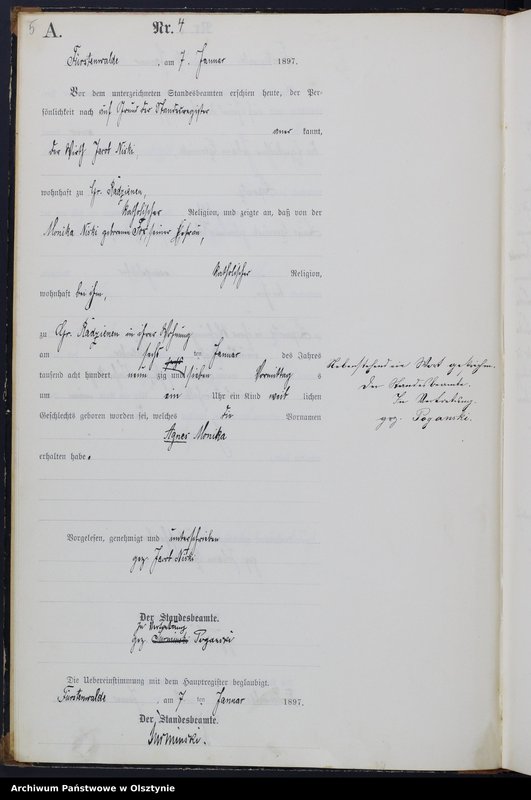 5
A.
Nr. 4
Fürstenwalde, am 7. Januar 1897.
Vor dem unterzeichneten Standesbeamten erschien heute, der Per-
sönlichkeit nach auf Grund der Standesregister
aner kannt,
der Wirth Jacob
wohnhaft zu Gr. Radzienen,
katholischer Religion, und zeigte an, daß von der
Monika geborene seiner Ehefrau,
katholischer Religion,
wohnhaft bei ihm,
zu Gr. Radzienen in ihrer Wohnung
am sechs ten Januar des Jahres
tausend acht hundert neun zig und sieben Vormittag s
um ein Uhr ein Kind weib lichen
Geschlechts geboren worden sei, welches die Vornamen
Agnes Monika
erhalten habe.
Vorgelesen, genehmigt und unterschrieben
gez. Jacob
Der Standesbeamte.
In Vertretung
gez. Poganski
Die Uebereinstimmung mit dem Hauptregister beglaubigt.
Fürstenwalde, am 7 ten Januar 1897.
Der Standesbeamte.
Nebenstehend ein Wort gestrichen.
Der Standesbeamte.
In Vertretung.
gez. Poganski.
Archiwum Państwowe w Olsztynie